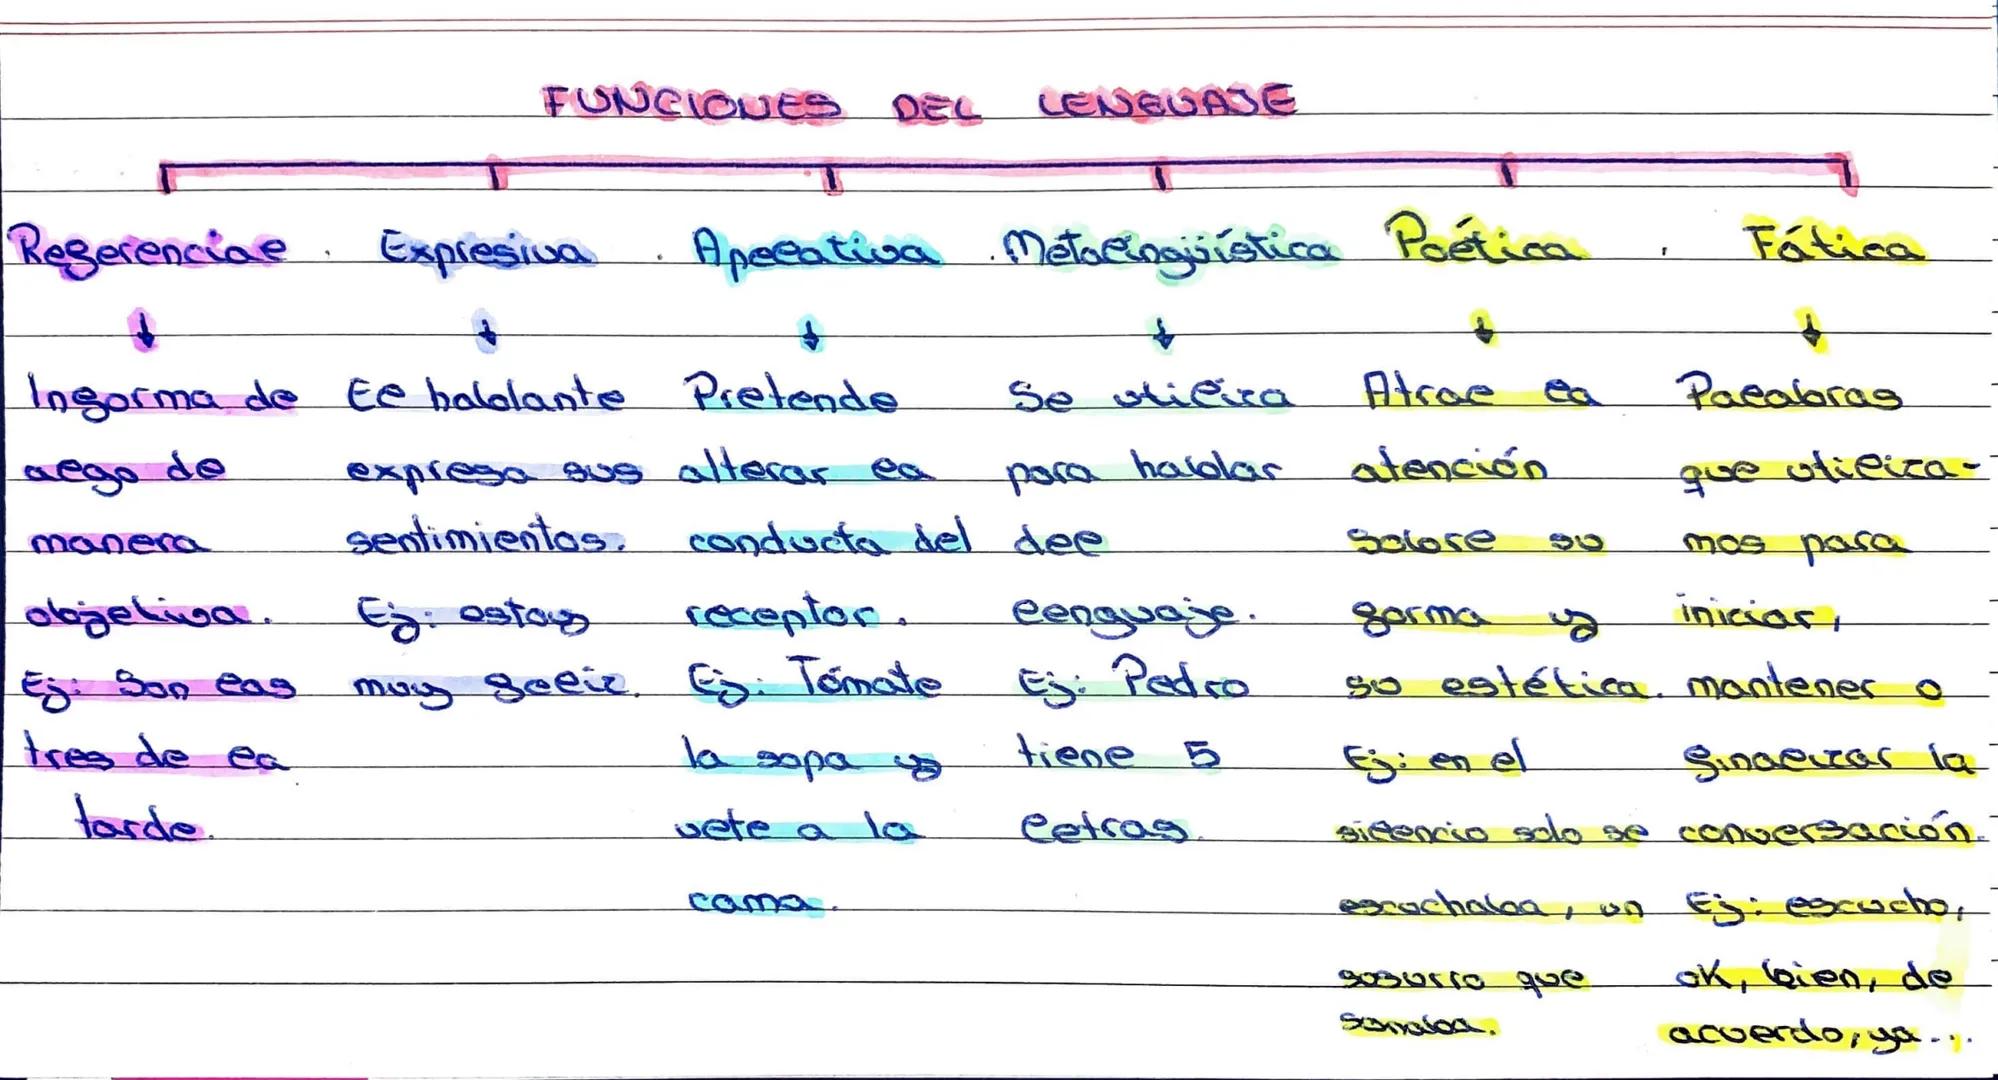 FUNCIONES DEL LENGUAJE
Referencial . Expresiva . Apelativa . Metalingüística Poética . Fática
Informa de
algo de
manera
objetiva.
Ej: Son las
tres de la
tarde.
El hablante
expresa sus
sentimientos.
Ej: estoy
muy feliz.
Pretende
alterar la
conducta del
receptor.
Ej: Tómate
la sopa y
vete a la
cama.
Se utiliza
para hablar
del
lenguaje.
Ej: Pedro
tiene 5
letras.
Atrae la
atención
sobre su
forma y
su estética.
Ej: en el
silencio solo se
escuchaba, un
susurro que
sonaba.
Palabras
que utiliza-
mos para
iniciar,
mantener o
finalizar la
conversación.
Ej: escucho,
ok, bien, de
acuerdo, ya...